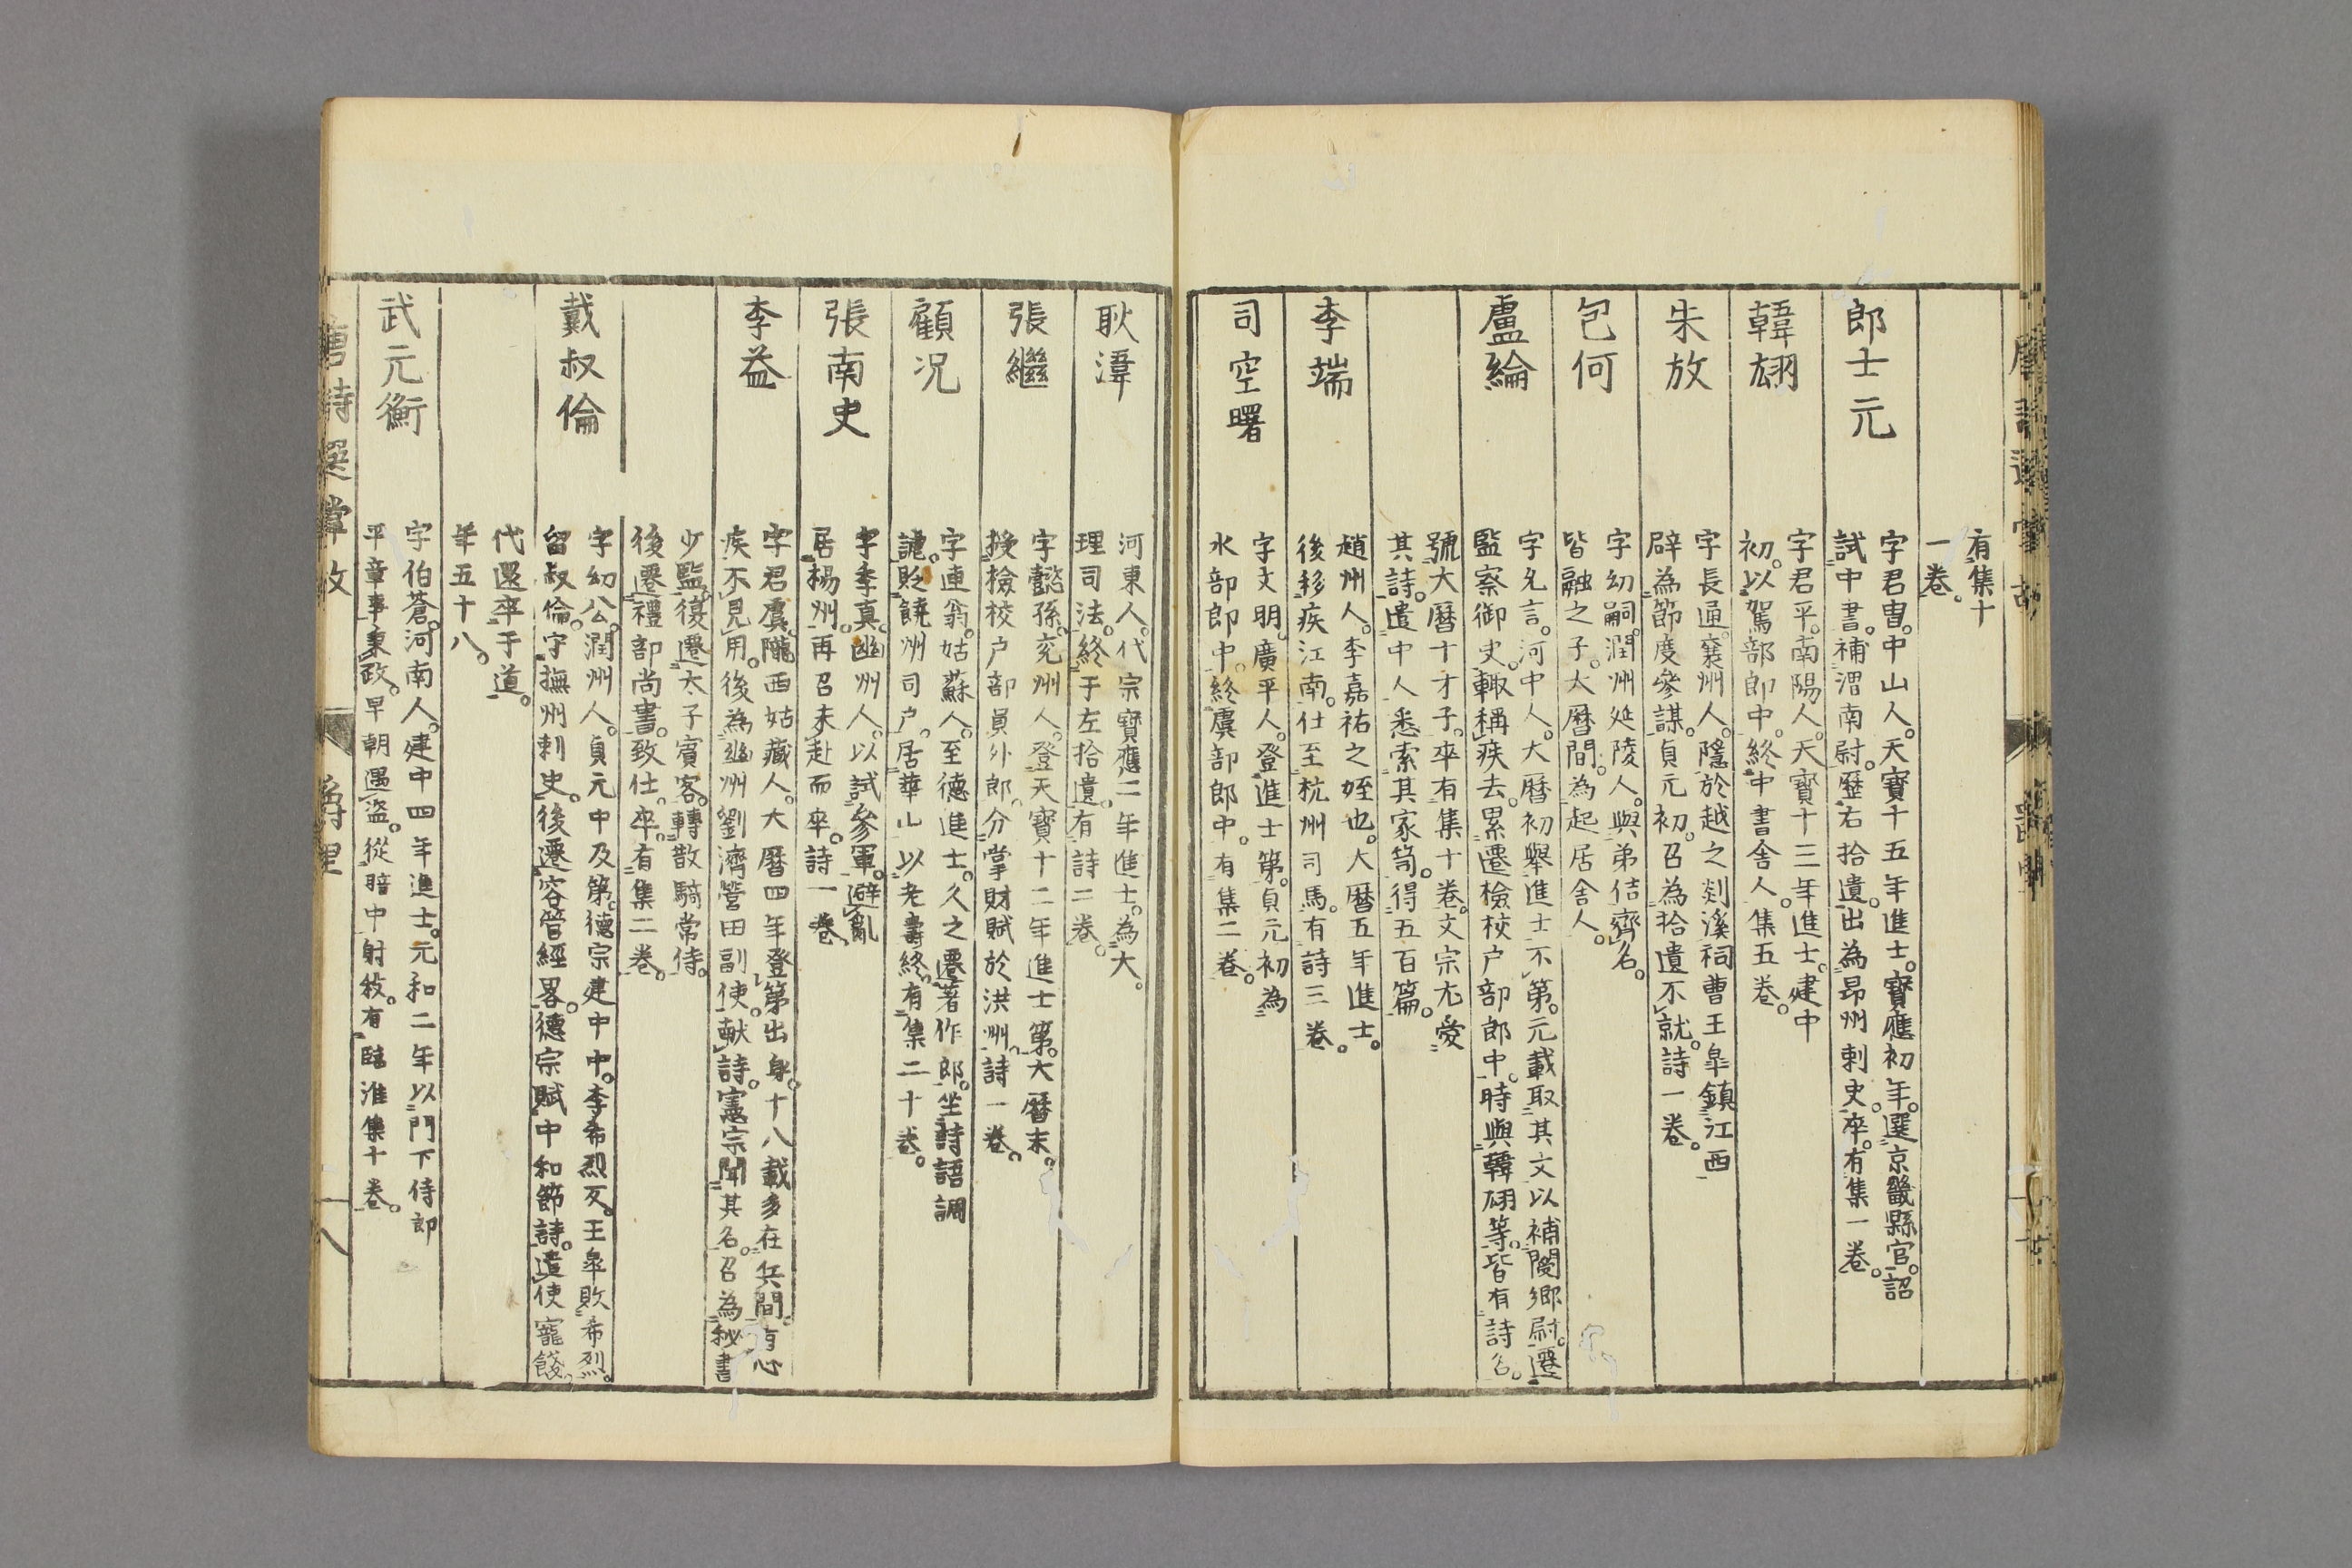 有集十
一卷。
郎士元
字君冑。中山人。天寶十五年進士。寶應初年。選京畿縣官。詔
試中書。補渭南尉。歷右拾遺。出為郢州刺史。卒。有集一卷。
韓翃
字君平。南陽人。天寶十三年進士。建中
初。以駕部郎中。終中書舍人。集五卷。
朱放
字長通。襄州人。隱於越之剡溪祠曹王皐鎮江西
辟為節度參謀。貞元初。召為拾遺不就。詩一卷。
包何
字幼嗣。潤州延陵人。與弟佶齊名。
皆融之子。大曆間。為起居舍人。
盧綸
字允言。河中人。大曆初舉進士不第。元載取其文以補閿鄉尉。遷
監察御史。輙稱疾去。累遷檢校户部郎中。時與韓翃等。皆有詩名。
號大曆十才子。卒有集十卷。文宗尤愛
其詩。遣中人悉索其家笥。得五百篇。
李端
趙州人。李嘉祐之姪也。大曆五年進士。
後移疾江南。仕至杭州司馬。有詩三卷。
司空曙
字文明。廣平人。登進士第。貞元初為
水部郎中。終虞部郎中。有集二卷。
耿湋
河東人。代宗寶應二年進士。為大。
理司法。終于左拾遺。有詩二卷。
張繼
字懿孫。兖州人。登天寶十二年進士第。大曆末。
授檢校户部員外郎。分掌財賦於洪州。詩一卷。
顧况
字逋翁。姑蘇人。至德進士。久之遷著作郎。坐詩語調
謔。貶饒州司户。居華山。以老壽終。有集二十卷。
張南史
字季真。幽州人。以試參軍。避亂
居楊州。再召未赴而卒。詩一卷。
李益
字君虞。隴西姑藏人。大曆四年登第出身。十八載多在兵間。有心
疾不見用。後為幽州劉濟營田副使。献詩。憲宗聞其名。召為秘書
少監。復遷太子賓客。轉散騎常侍。
後遷禮部尚書。致仕。卒。有集二卷。
戴叔倫
字幼公。潤州人。貞元中及第。德宗建中中。李希烈反。王皐敗希烈。
留叔倫。守撫州刺史。後遷容管經畧。德宗賦中和節詩。遣使寵餞。
代還卒于道。
年五十八。
武元衡
字伯蒼。河南人。建中四年進士。元和二年以門下侍郎
平章事秉政。早朝遇盗。從暗中射殺。有臨淮集十卷。
唐詩選掌故
爵里
八